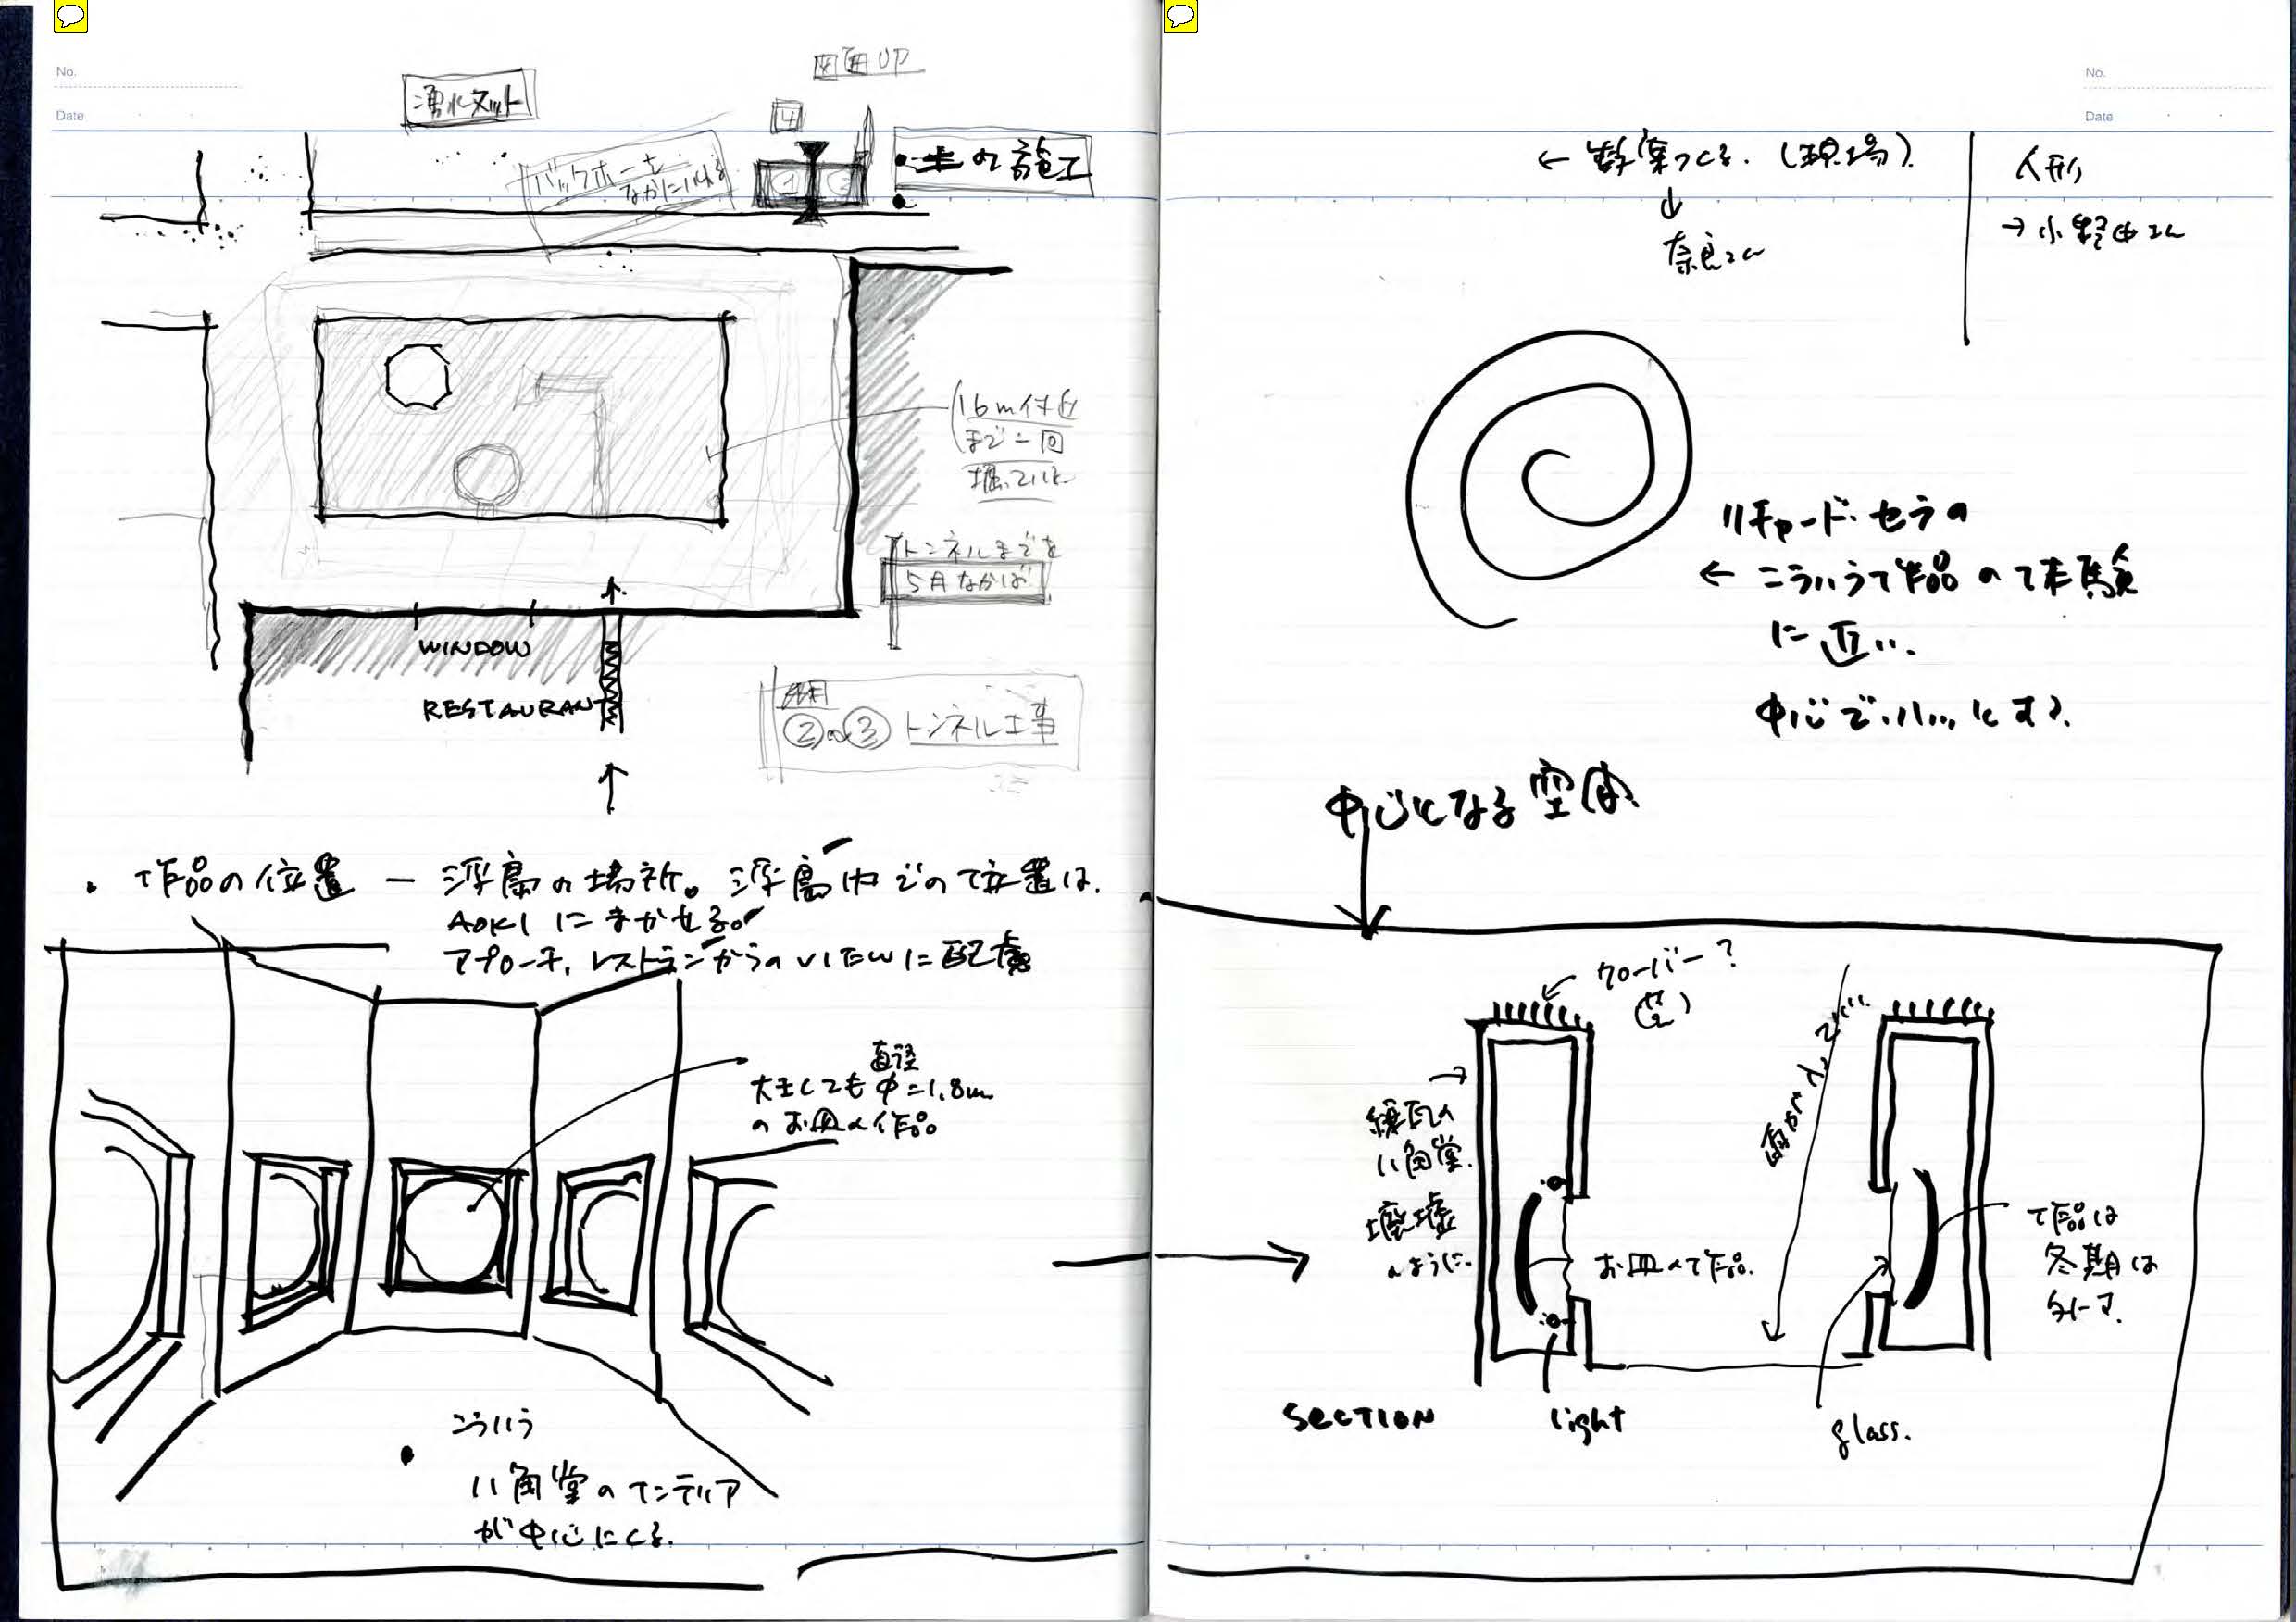 No.
Date
図面UP
湧水マット
4
バックホーを
なかにいれる
1
2
土の施工
16m付近
まで一回
掘っていく
トンネルまでを
5月なかば
WINDOW
RESTAURANT
②〜③ トンネル工事
・作品の位置 ー 浮島の場所。浮島内での位置は、
AOKIにまかせる。
アプローチ、レストランからのVIEWに配慮
直径
大きくてもφ=1.8m
のお皿の作品
こういう
八角堂のインテリア
が中心にくる。
No.
Date
← 型つくる。(現場)
↓
奈良さん
人形
→ 小野田さん
リチャード・セラの
← こういう作品の体験
に近い。
中心で、ハッとする。
中心となる空間
クローバー?
(芝)
煉瓦の
八角堂。
廃墟
のように。
お皿の作品。
雨がふってい
作品は
冬期は
外す。
SECTION
light
glass.